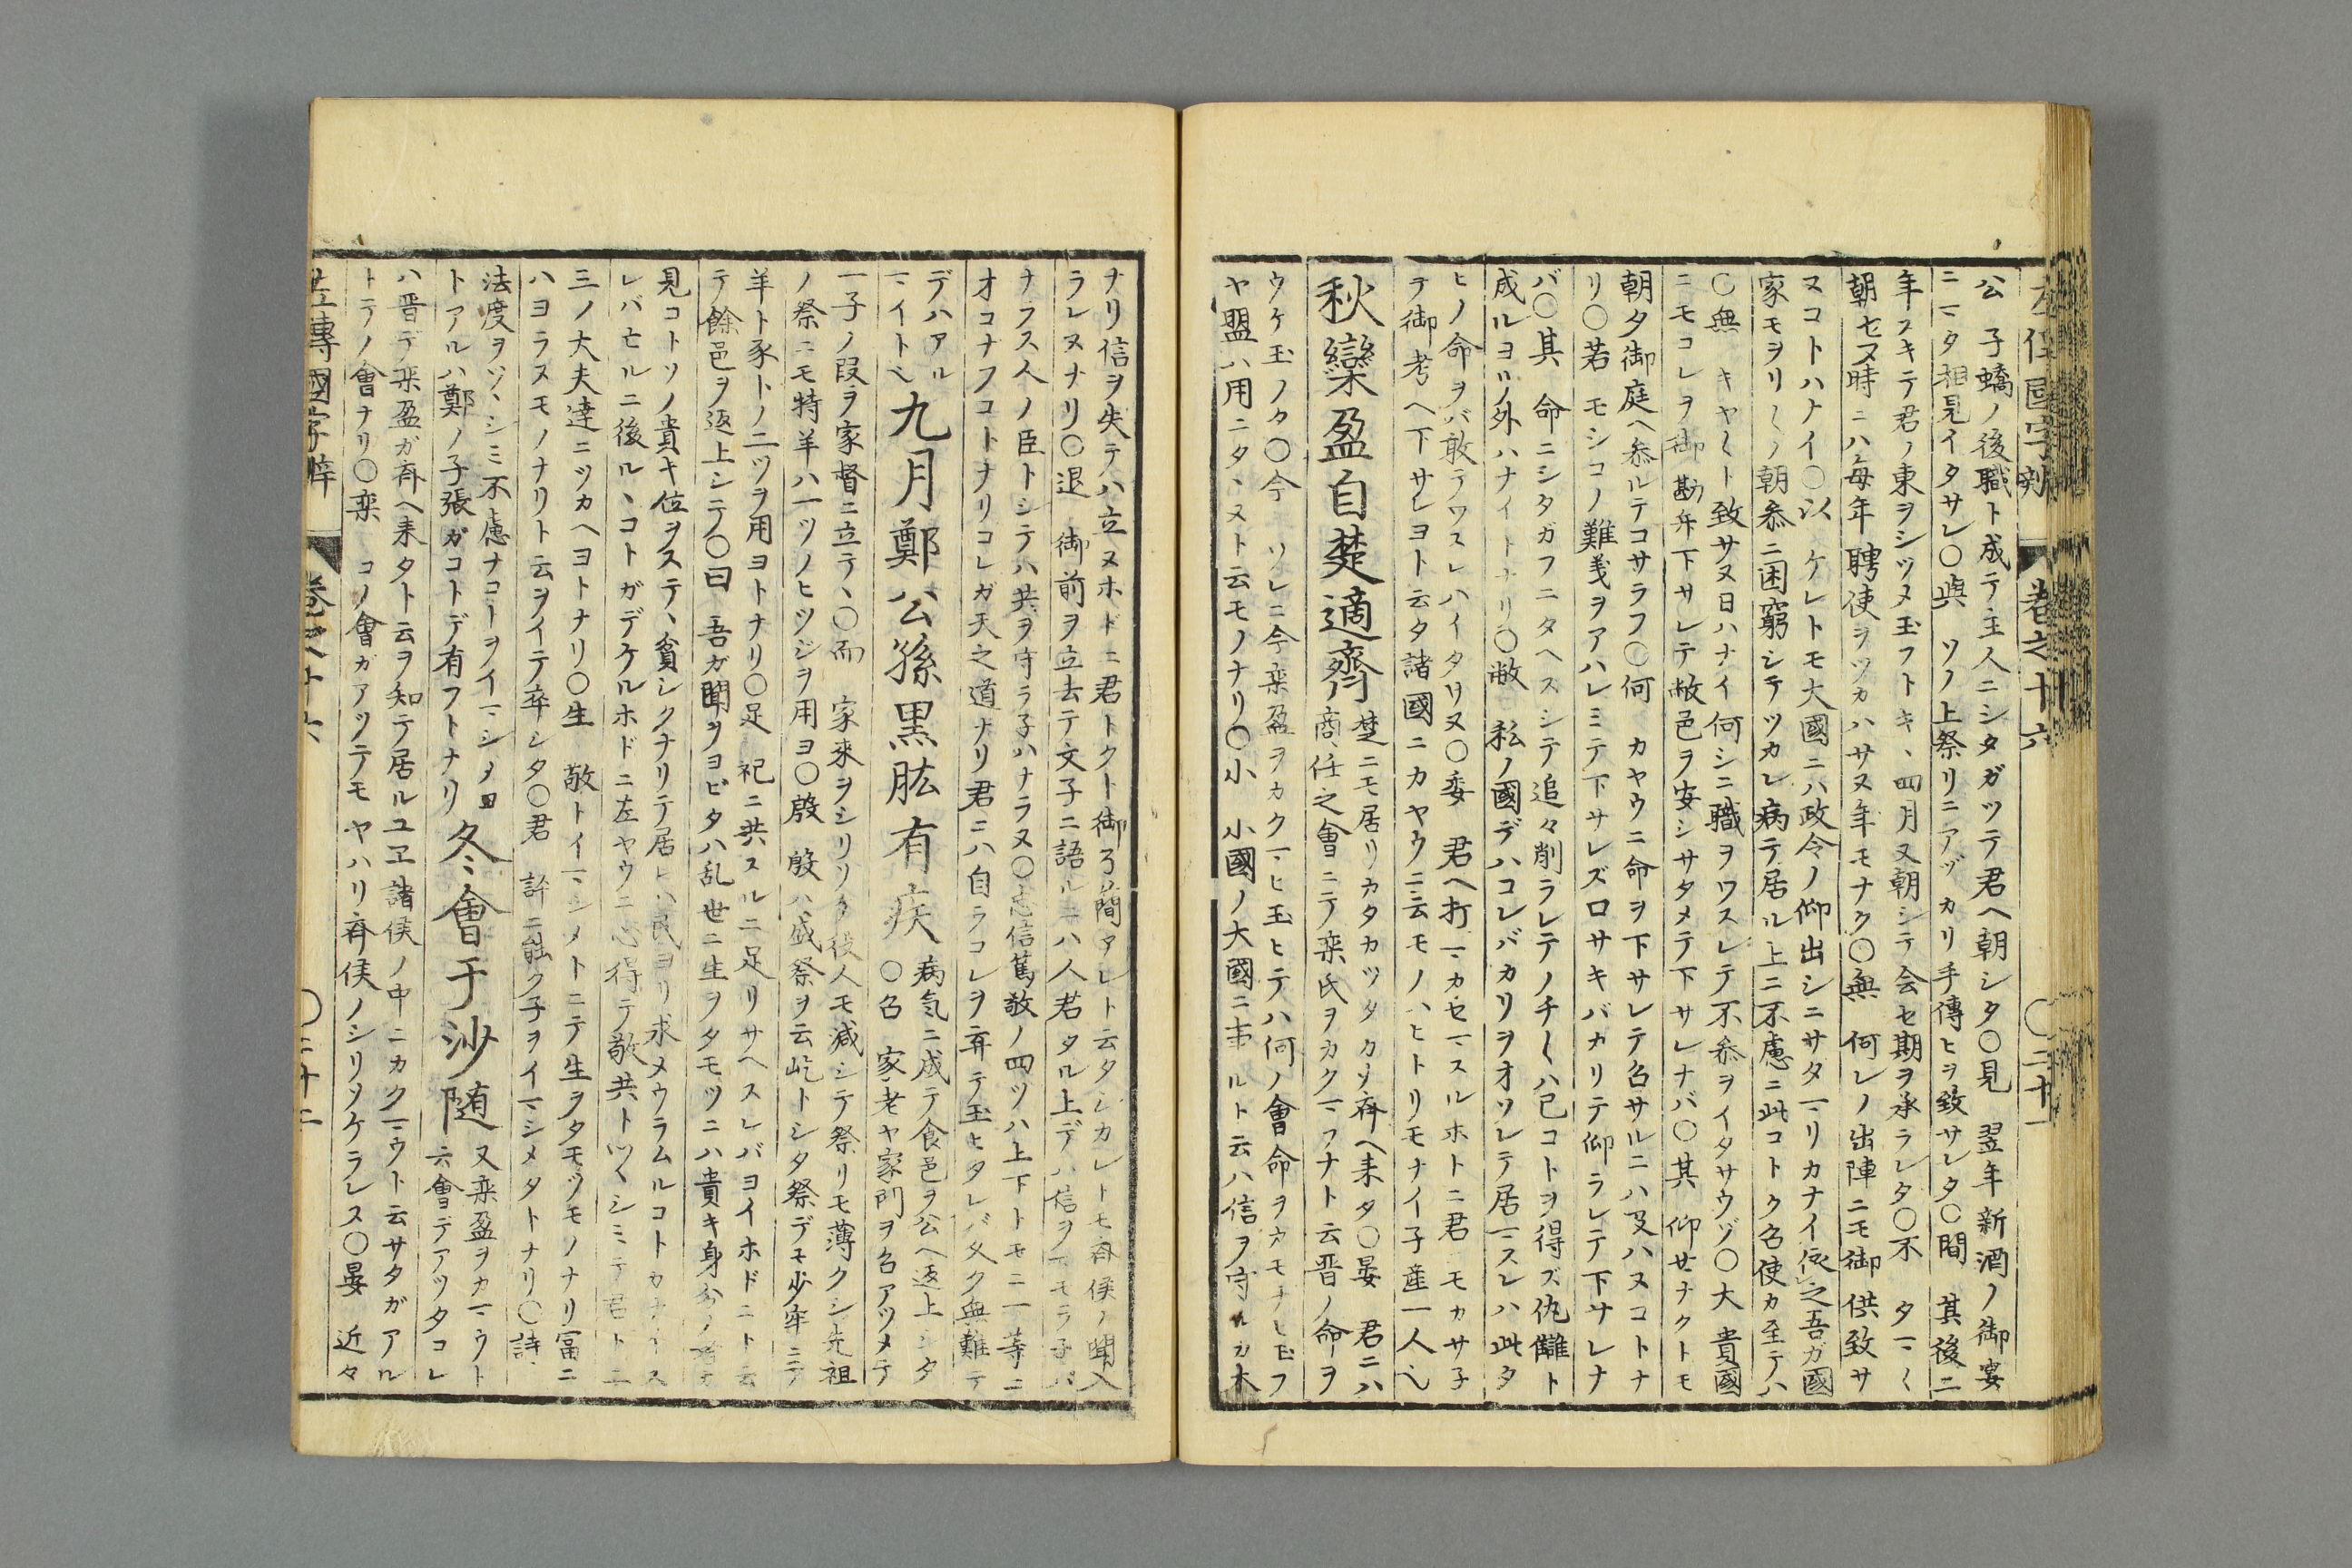 卷之十六
公子蟜ノ後職ト成テ主人ニシタガツテ君ヘ朝シタ〇見 翌年新酒ノ御宴
ニマタ相見イタサレ〇與 ソノ上祭リニアヅカリ手傳ヒヲ致サレタ〇間 其後二
年スキテ君ノ東ヲシヅメ玉フトキ、四月又朝シテ会セ期ヲ承ラレタ〇不 タマ〱
朝セヌ時ニハ毎年聘使ヲツカハサヌ年モナク〇無 何レノ出陣ニモ御供致サ
ヌコトハナイ〇以 ケレトモ大國ニハ政令ノ仰出シニサタマリカナイ依之吾ガ國
家モヲリ〱ノ朝参ニ困窮シテツカレ病テ居ル上ニ不慮ニ此コトク召使カ至テハ
〇無 キヤ〱ト致サヌ日ハナイ何シニ職ヲワスレテ不参ヲイタサウゾ〇大 貴國
ニモコレヲ御勘弁下サレテ敝邑ヲ安シサタメテ下サレナバ〇其 仰せナクトモ
朝夕御庭ヘ参ルテコサラフ〇何 カヤウニ命ヲ下サレテ召サルニハ及ハヌコトナ
リ〇若 モシコノ難義ヲアハレミテ下サレズロサキバカリテ仰ラレテ下サレナ
バ〇其 命ニシタガフニタヘスシテ追々削ラレテノチ〱ハ已コトヲ得ズ仇讎ト
成ルヨリ外ハナイトナリ〇敝 私ノ國デハコレバカリヲオソレテ居マスレハ此タ
ヒノ命ヲバ敢テワスレハイタサヌ〇委 君ヘ打マカセマスルホトニ君ニモカサ子
テ御考ヘ下サレヨト云タ諸國ニカヤウニ云モノハヒトリモナイ子産一人ヘ
秋欒盈自楚適齊 楚ニモ居リカタカツタカソ斉ヘ来タ〇晏 君ニハ
商任之會ニテ栾氏ヲカクマフナト云晋ノ命ヲ
ウケ玉ノタ〇今 ソレニ今栾盈ヲカクマヒ玉ヒテハ何ノ會命ヲカモチヒ玉フ
ヤ盟ハ用ニタヽヌト云モノナリ〇小 小國ノ大國ニ事ルト云ハ信ヲ守ルカ木
ナリ信ヲ失テハ立ヌホドニ君トクト御了簡アレト云タシカレトモ斉侯ノ聞入
ラレヌナリ〇退 御前ヲ立去テ文子ニ語ルニハ人君タル上デハ信ヲマモラ子バ
ナラス人ノ臣トシテハ共ヲ守ラ子ハナラヌ〇忠信篤敬ノ四ツハ上下トモニ一等ニ
オコナフコトナリコレガ天之道ナリ君ニハ自ラコレヲ弃テ玉ヒタレバ久ク無難テ
デハアル
マイトヘ 九月鄭公孫黒肱有疾 病気ニ成テ食邑ヲ公ヘ返上シタ
〇召 家老ヤ家門ヲ召アツメテ
一子ノ段ヲ家督ニ立テ、〇而 家来ヲシリソケ役人モ減シテ祭リモ薄クシ先祖
ノ祭ニモ特羊ハ一ツノヒツジヲ用ヨ〇殷 殷ハ盛祭ヲ云屹トシタ祭デモ少牢ニテ
羊ト豕トノ二ツヲ用ヨトナリ〇足 祀ニ共スルニ足リサヘスレバヨイホドニト云
テ餘邑ヲ返上シテ〇曰 吾ガ聞ヲヨビタハ乱世ニ生ヲタモツニハ貴キ身分ノ者カ
見コトソノ貴キ位ヲステ、貧シクナリテ居レハ民ヨリ求メウラムルコトカナイス
レバ亡ルニ後ルヽコトガデケルホドニ左ヤウニ心得テ敬共トツヽシミテ君ト二
三ノ大夫達ニツカヘヨトナリ〇生 敬トイマシメトニテ生ヲタモヅモノナリ冨ニ
ハヨラヌモノナリト云ヲイテ卒シタ〇君 許ニ能ク子ヲイマシメタトナリ〇詩
法度ヲツヽシミ不慮ナコーヲイマシメヨ
トアルハ鄭ノ子張ガコトデ有フトナリ 冬會于沙随 又栾盈ヲカマウト
云會デアツタコレ
ハ晋デ栾盈ガ斉ヘ来タト云ヲ知テ居ルユヱ諸侯ノ中ニカクマウト云サタガアル
トテノ會ナリ〇栾 コノ會ガアツテモヤハリ斉侯ノシリソケラレス〇晏 近々
左傳國字辨 卷之十六 〇二十二